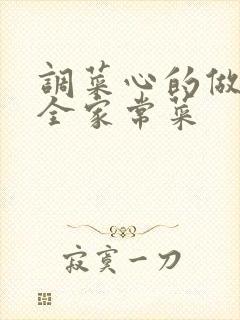 調菜心的做
全家常菜
寂寞一刀